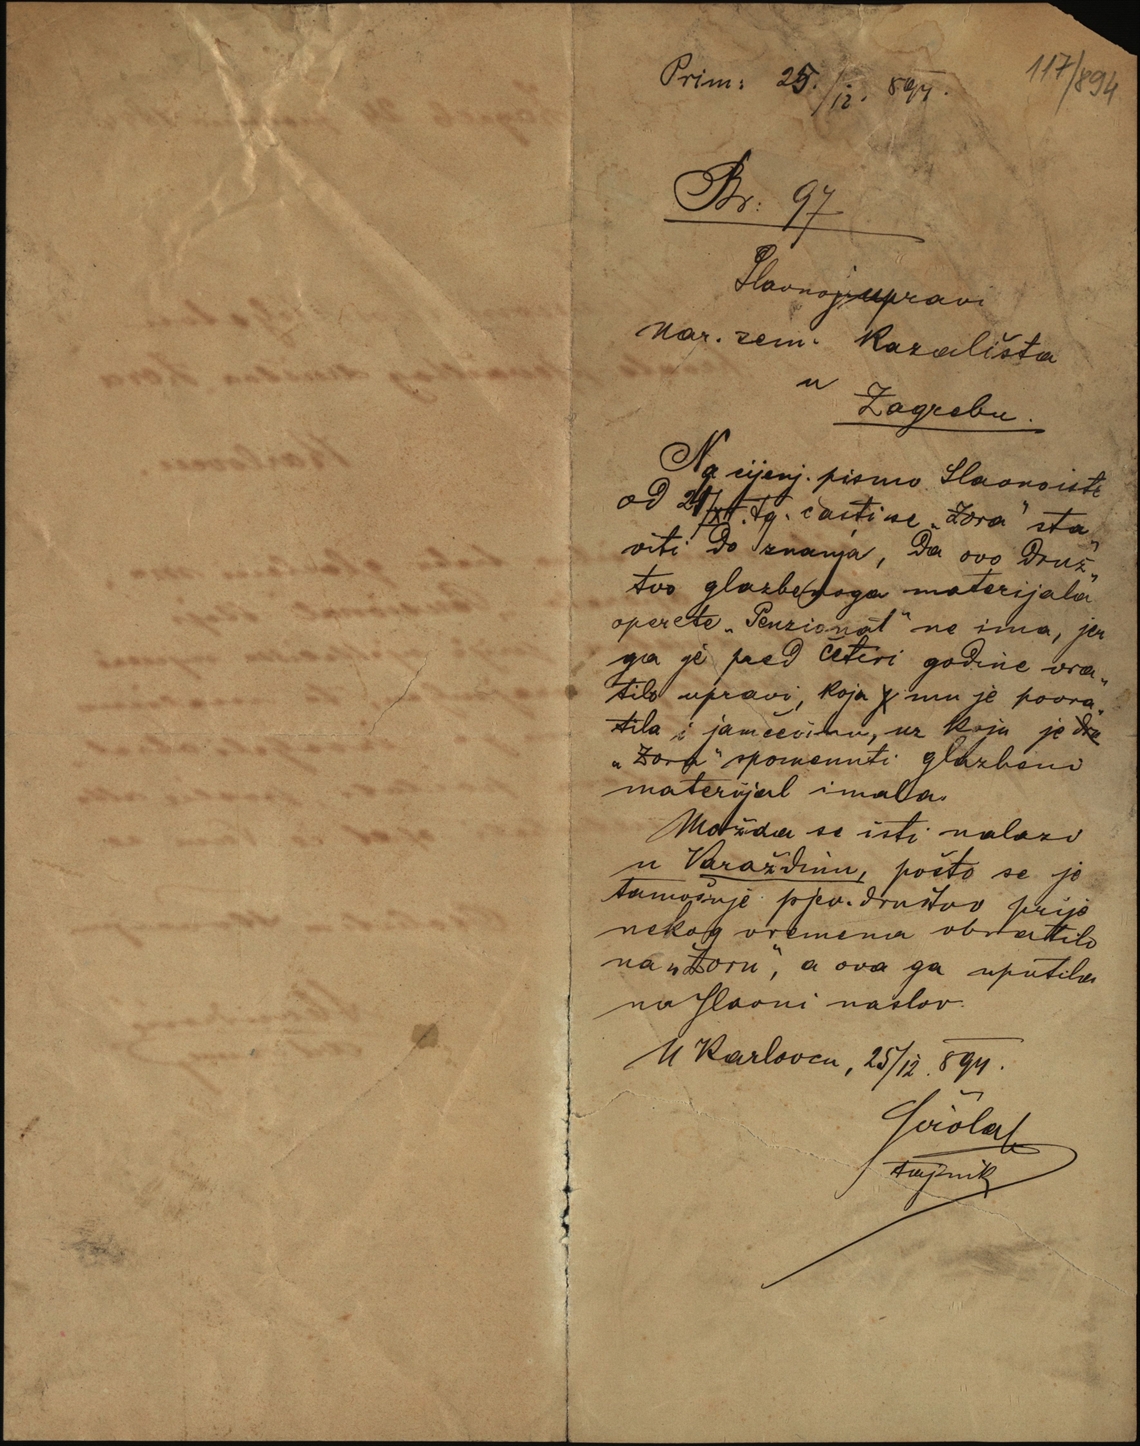 117/894
Prim: 25./12. 894.
Br: 97
Slavnoj upravi
nar. zem. kazališta
u
Zagrebu.
Na cijenj. pismo Slavnoisti
od 21/XII. tg. časti se „Zora" sta„
viti do znanja, da ovo druž„
tvo glazbenoga materijala
operete „Penzionat" ne ima, jer
ga je pred četiri godine vra„
tilo upravi, koja mu je povra„
tila i jamčevinu, uz koju je
„Zora" spomenuti glazbeni
materijal imala.
Možda se isti nalazi
u Varaždinu, pošto se je
tamošnje pjev. društvo prije
nekog vremena obratilo
na „Zoru", a ova ga uputila
na Slavni naslov.
U Karlovcu, 25/12. 894.
tajnik